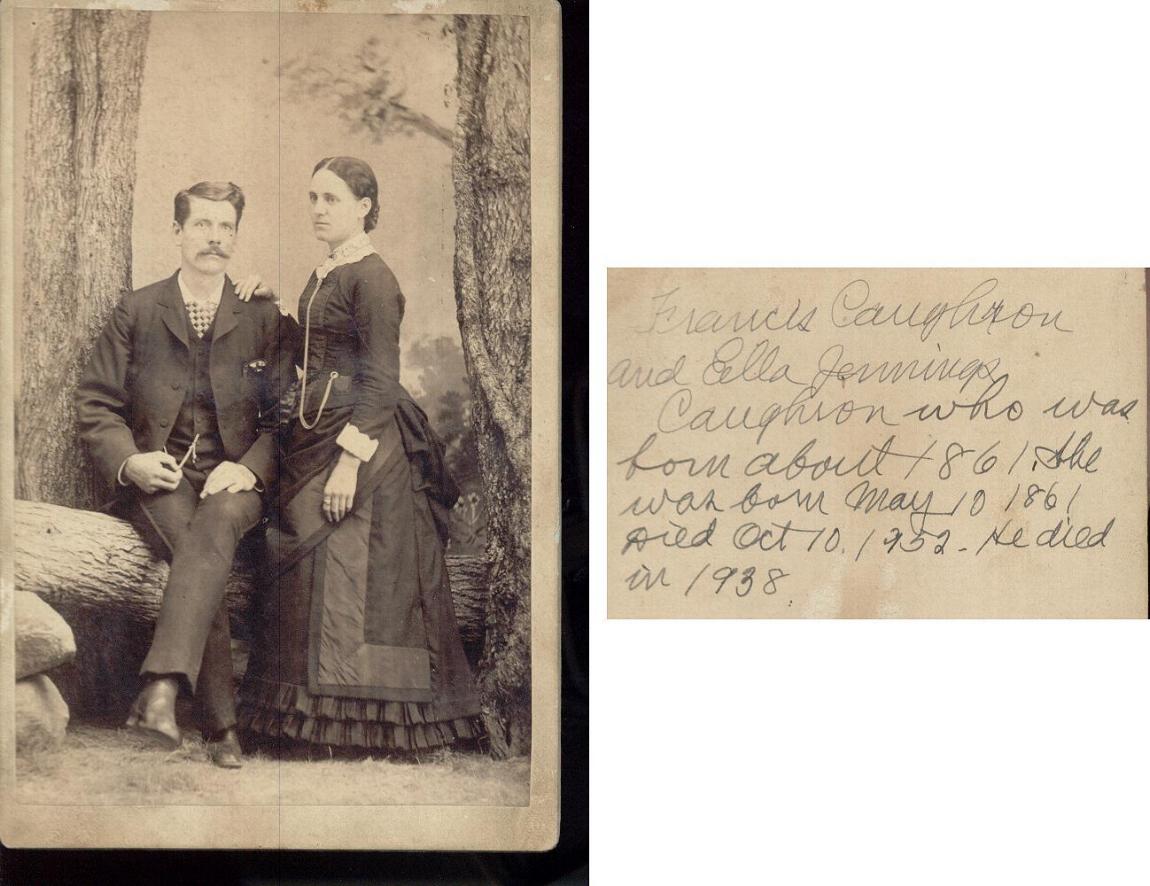 Francis Caughron
and Ella Jennings
Caughron who was
born about 1861. She
was born May 10 1861
Died Oct 10, 1952. He died
in 1938.